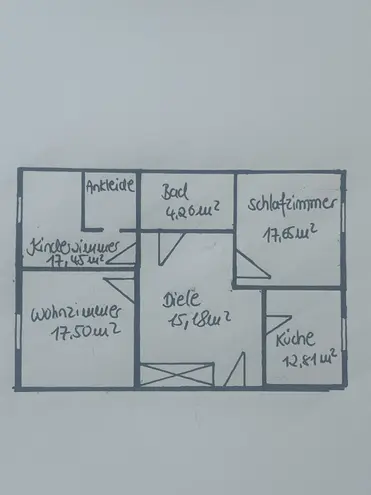 Ankleide
Bad
4,26m²
Schlafzimmer
17,65m²
Kinderzimmer
17,45m²
Wohnzimmer
17.50m²
Diele
15,18m²
Küche
12,81m²